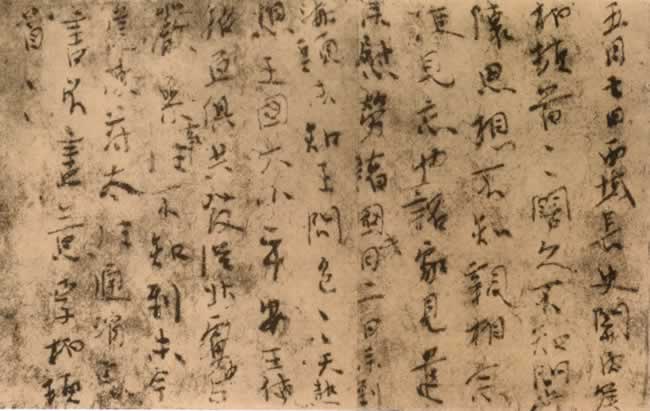 五月七日西域長史關內侯
柏頓首、、闊久不知問常
懷思想不知親相念
便見忘也詔家見遣
來慰勞諸國月二日來到
海頭未知王問邑、天熱
想王國大小平安王使
招亙俱共發從北虜中
嚴參事往不知到未今
遣使苻太往通消息
書不盡意李柏頓
首、、